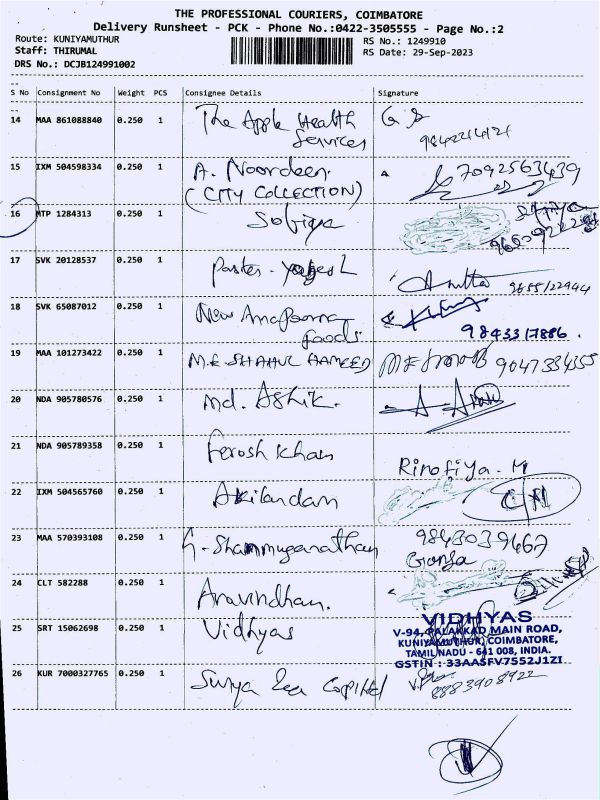 THE PROFESSIONAL COURIERS, COIMBATORE
Delivery Runsheet - PCK - Phone No.:0422-3505555 - Page No.:2
Route: KUNIYAMUTHUR
RS No.: 1249910
Staff: THIRUMAL
RS Date: 29-Sep-2023
DRS No.: DCJB124991002
S No Consignment No Weight PCS Consignee Details Signature
14 MAA 861088840 0.250 1 The Apple Health
Services
15 IXM 504598334 0.250 1 A. Noordeen 7092563439
(CITY COLLECTION)
16 MTP 1284313 0.250 1 Sofiya
17 SVK 20128537 0.250 1 Pastor. 9655122944
18 SVK 65087012 0.250 1 New Annapoorna
Foods 9843317886.
19 MAA 101273422 0.250 1 M.E SHAHUL HAMEED 9047334355
20 NDA 905780576 0.250 1 Md. Ashik.
21 NDA 905789358 0.250 1 Ferosh Khan
Rinofiya. M
22 IXM 504565760 0.250 1 Akilandam
23 MAA 570393108 0.250 1 G. Shanmuganathan 9843039467
24 CLT 582288 0.250 1 Aravindhan.
25 SRT 15062698 0.250 1 Vidhyas
VIDHYAS
V-94, PALAKKAD MAIN ROAD,
KUNIYAMUTHUR, COIMBATORE,
TAMIL NADU - 641 008, INDIA.
GSTIN : 33AASFV7552J1ZI
26 KUR 7000327765 0.250 1 Surya 8883908922